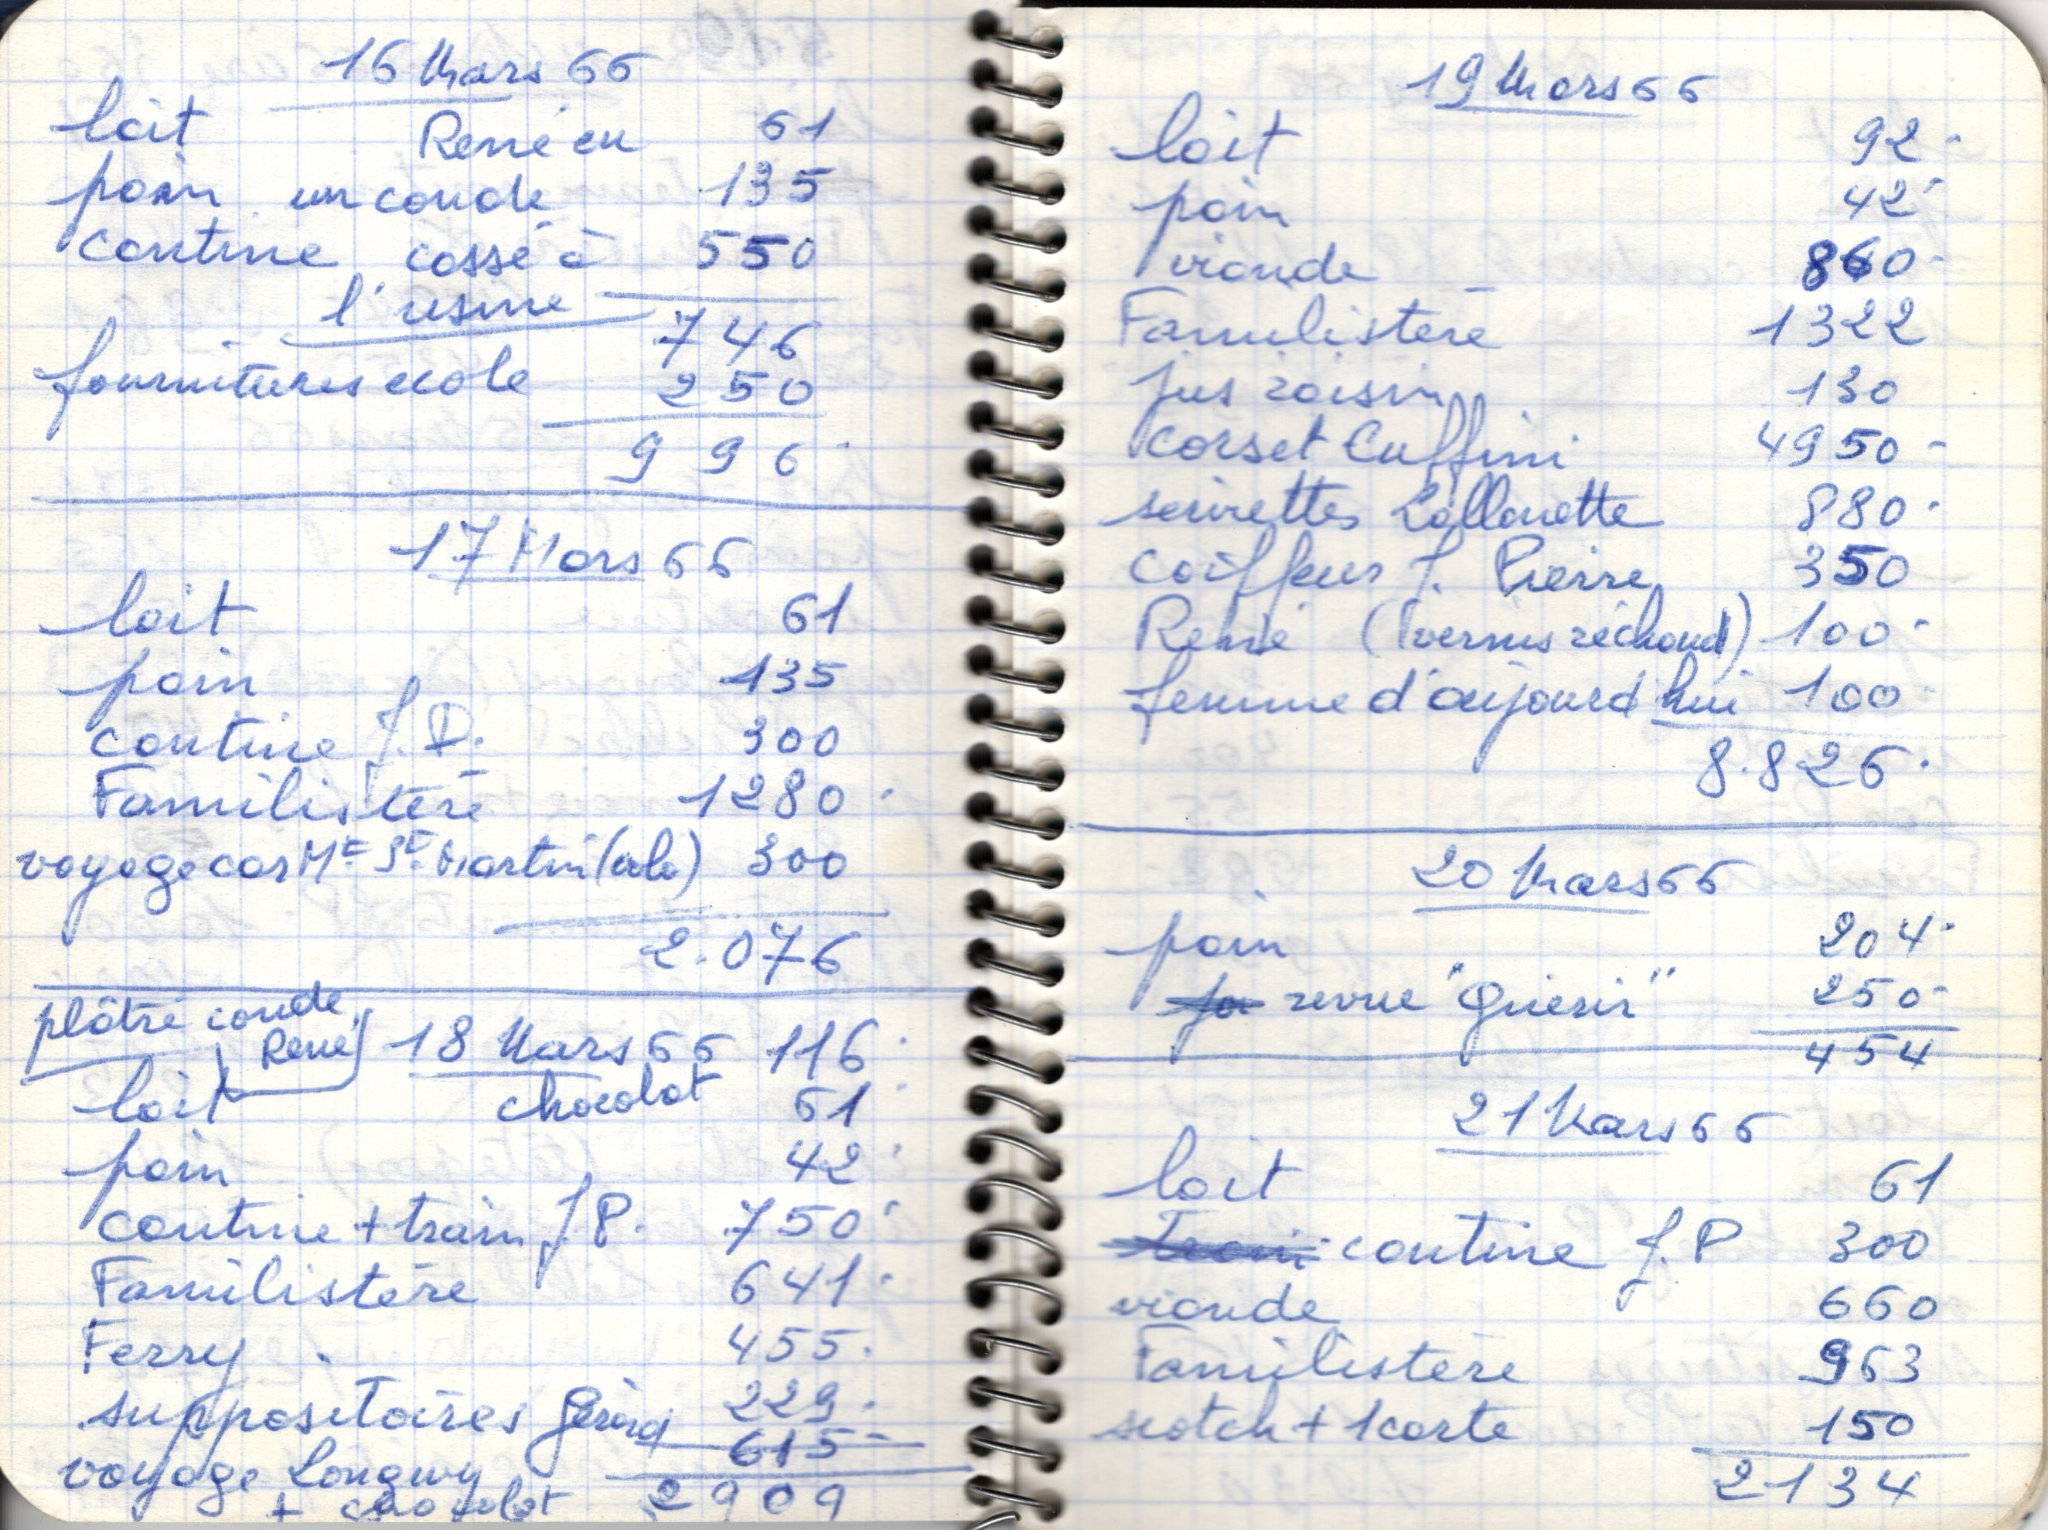 16 Mars 66
lait René eu 61
pain un coude 135
cantine cassé à 550
l'usine
746
fournitures école 250
996
17 Mars 66
lait 61
pain 135
cantine J.P. 300
Familistère 1280
voyage car Mt St Martin 300
2.076
plâtre coude
René 18 Mars 66 116
chocolat
lait 61
pain 42
cantine + train J.P. 750
Familistère 641
Ferry 455
suppositoires Gérard 229
voyage Longwy 615
+ chocolat 2909
19 Mars 66
lait 92
pain 42
viande 860
Familistère 1322
jus raisin 130
corset Cuffini 4950
serviettes Lallouette 880
coiffeur J. Pierre 350
René (vernis réchaud) 100
femme d'aujourd'hui 100
8.826
20 Mars 66
pain 204
revue "Guérir" 250
454
21 Mars 66
lait 61
cantine J.P 300
viande 660
Familistère 963
scotch + 1 carte 150
2134